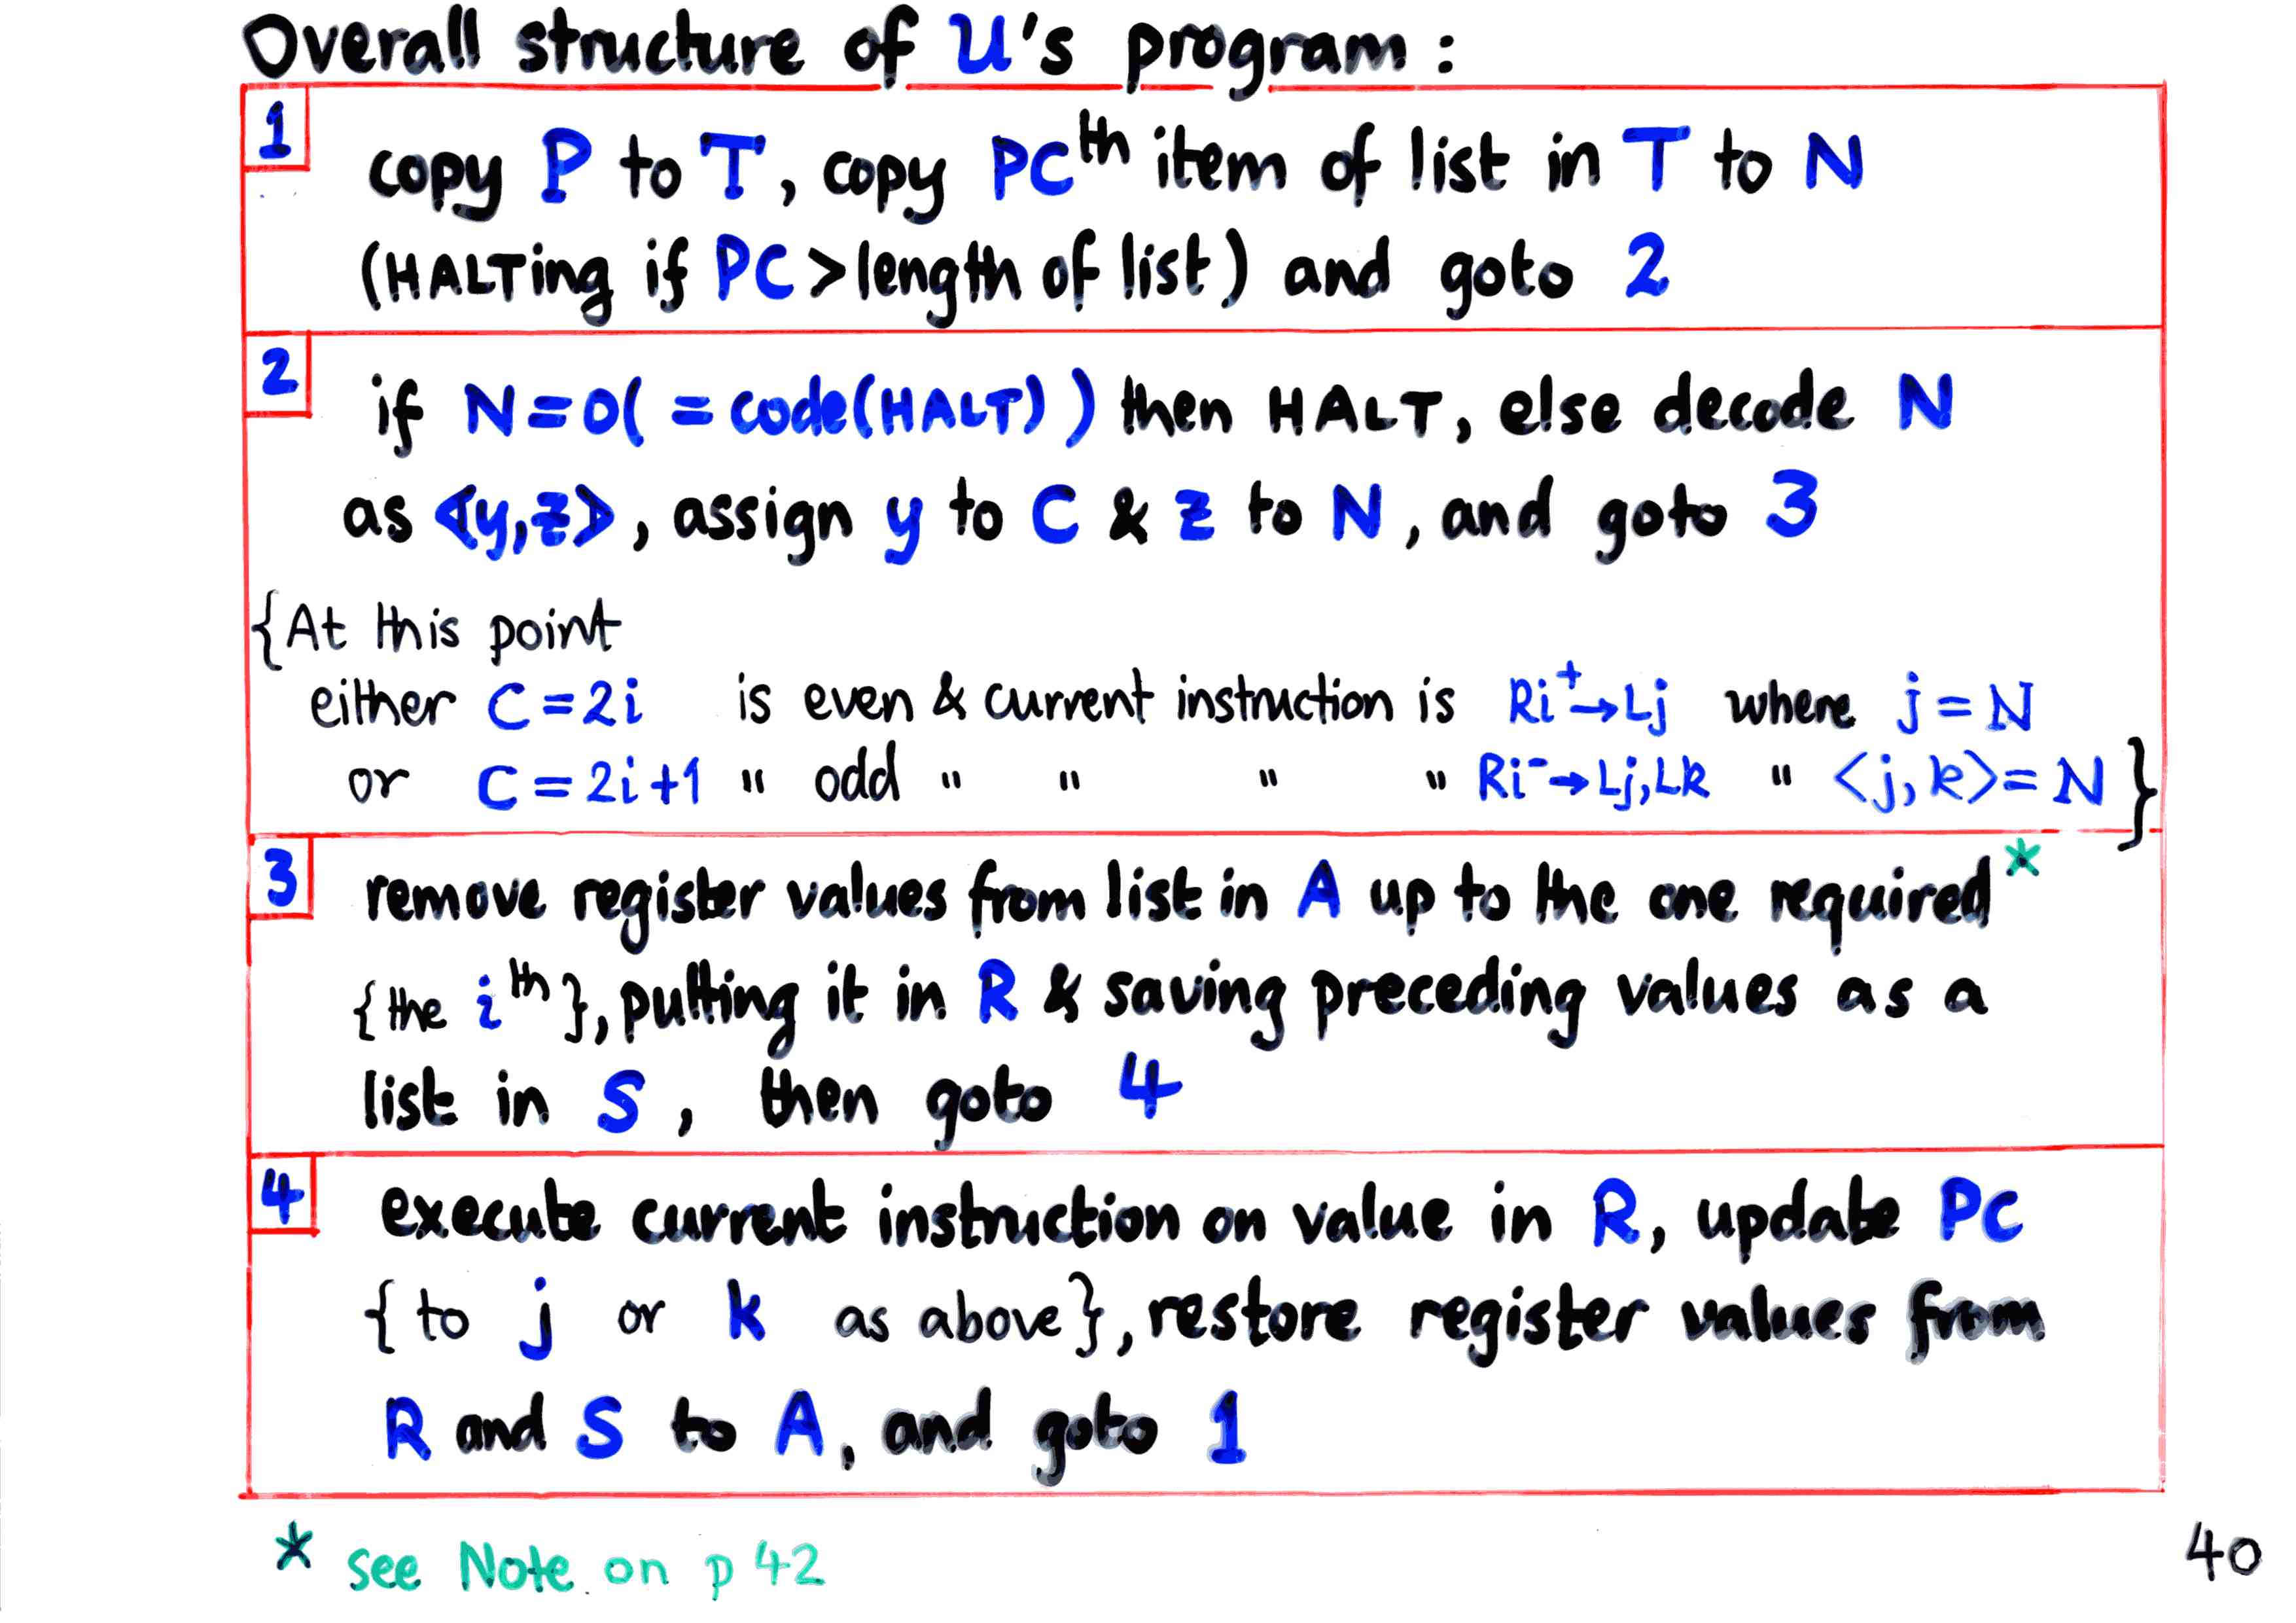 Overall structure of U's program :
1
copy P to T, copy PCth item of list in T to N
(HALTing if PC > length of list) and goto 2
2
if N=0( = code(HALT) ) then HALT, else decode N
as ⟪y,z⟫, assign y to C & z to N, and goto 3
{At this point
either C = 2i is even & current instruction is Ri⁺→Lj where j = N
or C = 2i+1 " odd " " " " Ri⁻→Lj,Lk " <j,k> = N }
3
remove register values from list in A up to the one required*
{the ith}, putting it in R & saving preceding values as a
list in S , then goto 4
4
execute current instruction on value in R, update PC
{to j or k as above}, restore register values from
R and S to A, and goto 1
* see Note on p 42
40